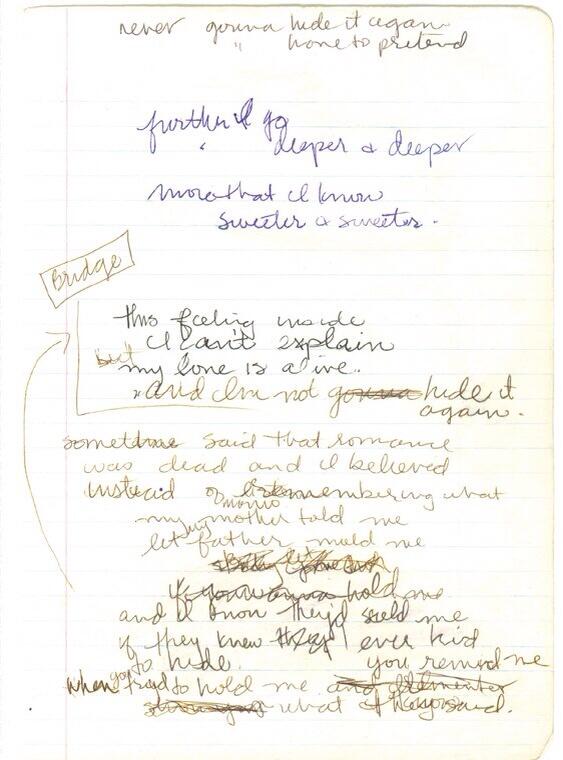 never gonna hide it again
" have to pretend
further I go
deeper & deeper
more that I know
sweeter & sweeter.
Bridge
this feeling inside
I can't explain
but
my love is alive.
"and I'm not gonna hide it
again.
said that romance
was dead and I believed
instead of remembering what
my mother told me
my
let father mold me
hold me
and I know they'd scold me
if they knew I ever hid
to hide. you remind me
when tried to hold me
what they said.